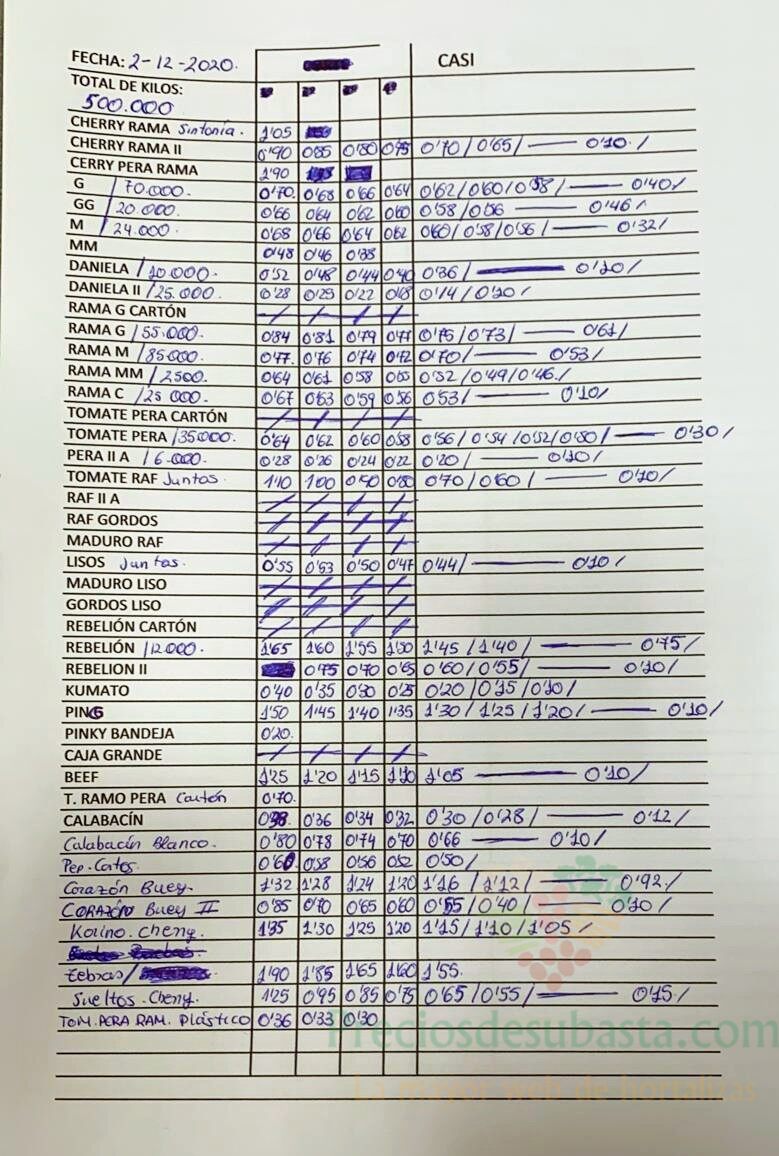 FECHA: 2-12-2020. CASI
TOTAL DE KILOS:
500.000
CHERRY RAMA Sintonía. 1'05
CHERRY RAMA II 0'90 0'85 0'80 0'75 0'70/0'65/—— 0'10./
CERRY PERA RAMA 1'90
G /70.000. 0'70. 0'68 0'66 0'64 0'62/0'60/0'58/—— 0'40/
GG /20.000. 0'66 0'64 0'62 0'60 0'58/0'56 —— 0'46/
M /24.000. 0'68 0'66 0'64 0'62 0'60/0'58/0'56/—— 0'32/
MM 0'48 0'46 0'38
DANIELA /10.000. 0'52 0'48 0'44 0'40 0'36/—— 0'20/
DANIELA II /25.000. 0'28 0'25 0'22 0'18 0'14/0'10/
RAMA G CARTÓN / / / /
RAMA G /55.000. 0'84 0'81 0'79 0'77 0'75/0'73/—— 0'61/
RAMA M /85000. 0'77. 0'76 0'74 0'72 0'70/—— 0'53/
RAMA MM /2500. 0'64 0'61 0'58 0'55 0'52/0'49/0'46./
RAMA C /25 000. 0'67 0'63 0'59 0'56 0'53/—— 0'10/
TOMATE PERA CARTÓN / / / /
TOMATE PERA /35000. 0'64 0'62 0'60 0'58 0'56/0'54/0'52/0'50/—— 0'30/
PERA II A /6.000. 0'28 0'26 0'24 0'22 0'20/—— 0'10/
TOMATE RAF Juntos. 1'10 1'00 0'90 0'80 0'70/0'60/—— 0'10/
RAF II A / / / /
RAF GORDOS / / / /
MADURO RAF / / / /
LISOS Juntos. 0'55 0'53 0'50 0'47 0'44/—— 0'10/
MADURO LISO / / / /
GORDOS LISO / / / /
REBELIÓN CARTÓN / / / /
REBELIÓN /12000. 1'65 1'60 1'55 1'50 1'45/1'40/—— 0'75/
REBELION II 0'75 0'70 0'65 0'60/0'55/—— 0'10/
KUMATO 0'40 0'35 0'30 0'25 0'20/0'15/0'10/
PING 1'50 1'45 1'40 1'35 1'30/1'25/1'20/—— 0'10/
PINKY BANDEJA 0'20.
CAJA GRANDE / / / /
BEEF 1'25 1'20 1'15 1'10 1'05 —— 0'10/
T. RAMO PERA Cartón 0'70.
CALABACÍN 0'38. 0'36 0'34 0'32 0'30/0'28/—— 0'12/
Calabacín Blanco. 0'80 0'78 0'74 0'70 0'66 —— 0'10/
Pep. Cortos 0'60. 0'58 0'56 0'52 0'50/
Corazón Buey. 1'32 1'28 1'24 1'20 1'16/1'12/—— 0'92./
CORAZÓN Buey II 0'85 0'70 0'65 0'60 0'55/0'40/—— 0'10/
Cherry. 1'35 1'30 1'25 1'20 1'15/1'10/1'05/
Zebras/ 1'90 1'85 1'65 1'60 1'55.
Sueltos Cherry. 1'25 0'95 0'85 0'75 0'65/0'55/—— 0'15./
TOM. PERA RAM. Plástico 0'36 0'33 0'30
Preciosdesubasta.com
La mayor web de hortalizas